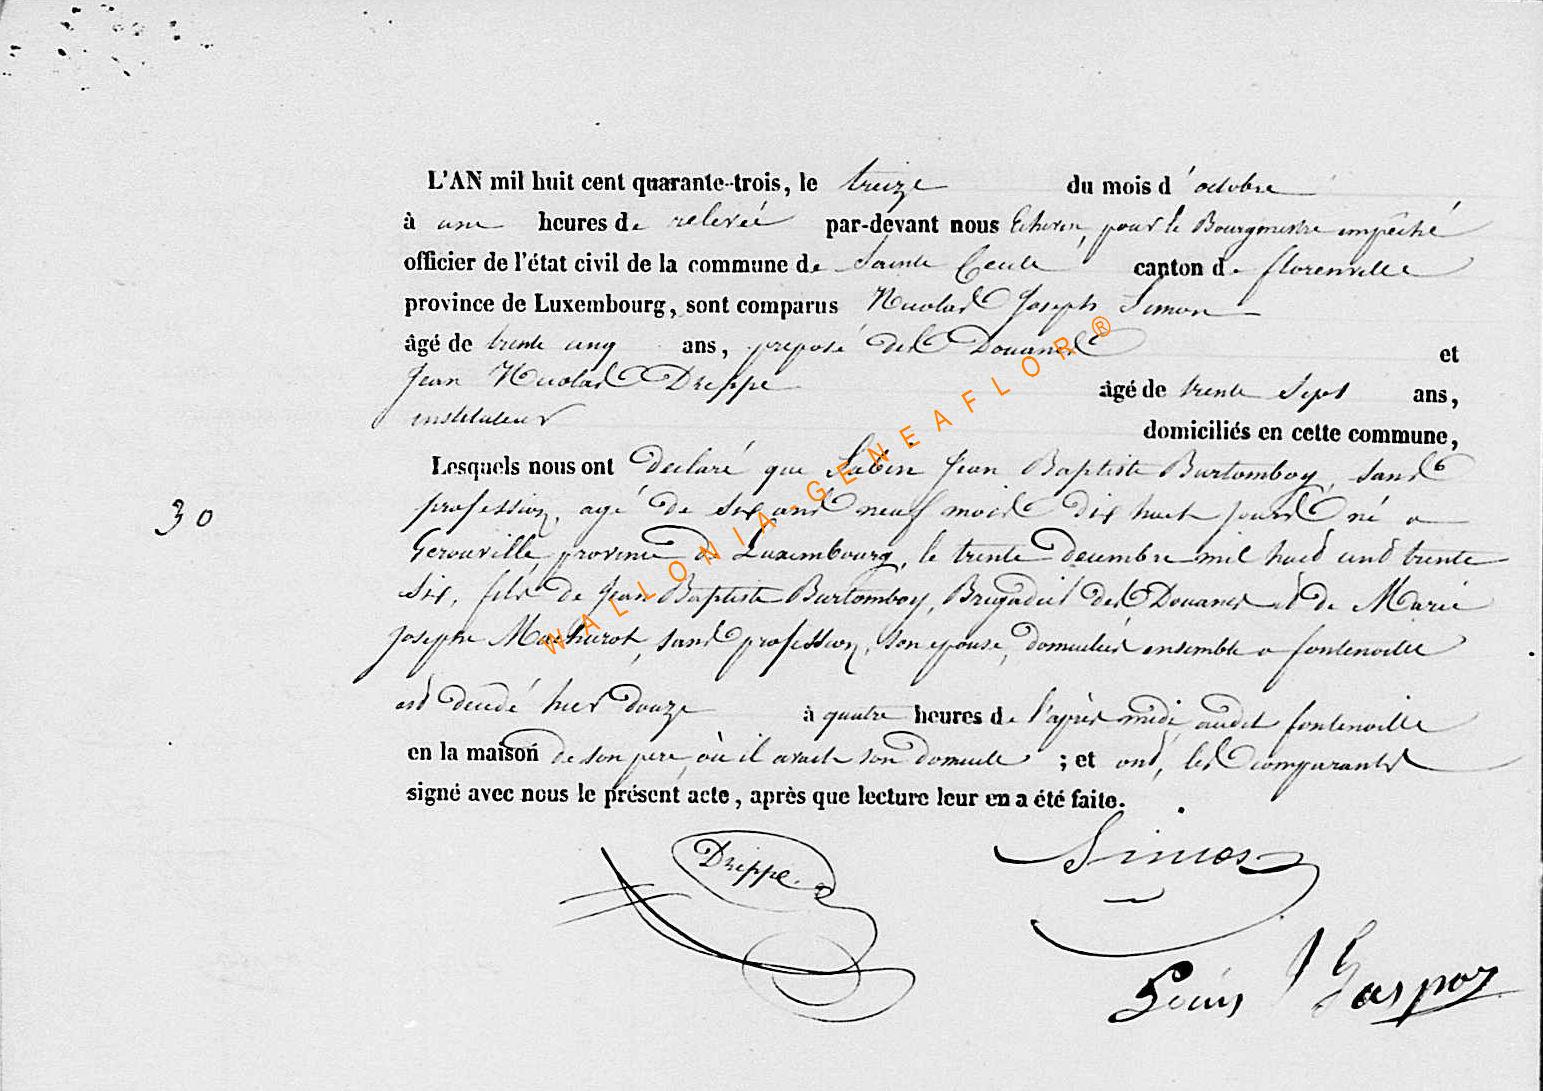 L'AN mil huit cent quarante-trois, le treize du mois d'octobre
à une heures de relevée par-devant nous Echevin, pour le Bourgmestre empêché
officier de l'état civil de la commune de Sainte Cecile canton de florenville
province de Luxembourg, sont comparus Nicolas Joseph Simon
âgé de trente cinq ans, préposé des Douanes et
Jean Nicolas Dreppe âgé de trente sept ans,
instituteur domiciliés en cette commune,
Lesquels nous ont declaré que Sabin Jean Baptiste Burtomboy, sans
profession, agé de six ans neuf mois dix huit jours né a
Gerouville, province de Luxembourg, le trente decembre mil huit cent trente
six, fils de Jean Baptiste Burtomboy, Brigadier des Douanes et de Marie
Joseph Machurot, sans profession, son epouse, domiciliés ensemble a fontenoille
est decedé hier douze à quatre heures de l'après midi audit fontenoille
en la maison de son pere, où il avait son domicile ; et ont, les comparants
signé avec nous le présent acte, après que lecture leur en a été faite.
30
Dreppe.
Simon
Louis J Gaspar
WALLONIA-GENEAFLOR®